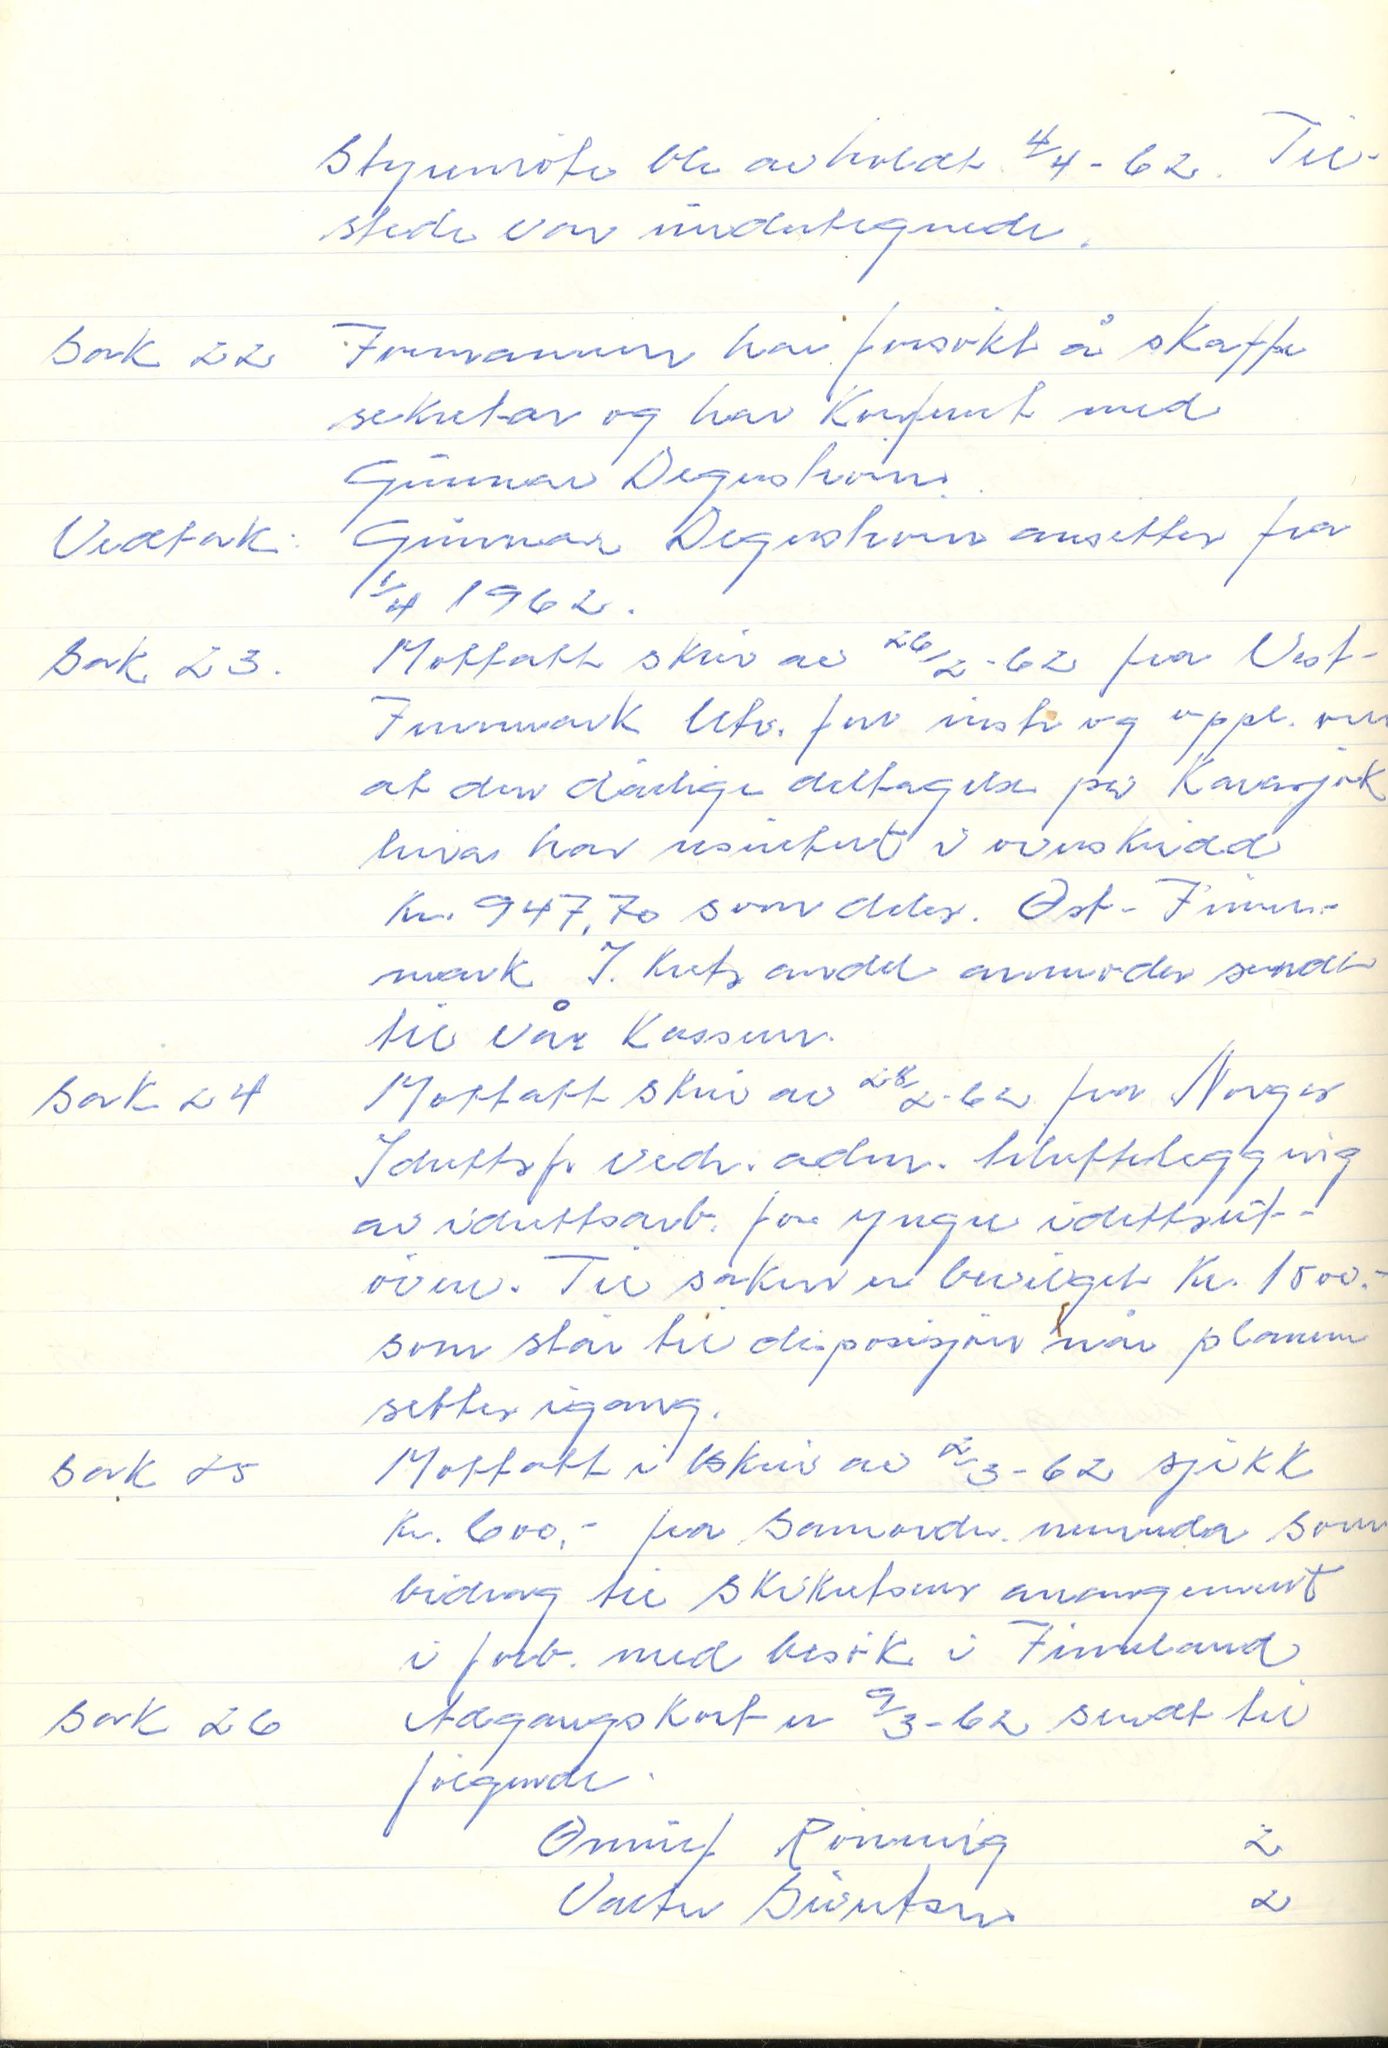 Styremöte ble avholdt 4/4-62. Til-
stede var undertegnede.
Sak 22 Formannen har forsökt å skaffe
sekretær og har konferert med
Gunnar
Vedtak: Gunnar ansettes fra
1/4 1962.
Sak 23. Mottatt skriv av 26/2-62 fra Vest-
Finnmark Utv. for instr og oppl. om
at den dårlige deltagelse på Karasjok
har resultert i overskudd
kr. 947,70 som deles. Öst-Finn-
mark I. krets andel anmodes sendt
til vår kasserer.
Sak 24 Mottatt skriv av 28/2-62 fra Norges
Idrettsf. vedr. adm. tilrettelegging
av idrettsarb. for yngre idrettsut-
övere. Til saken er bevilget kr. 1500.-
som står til disposisjon når planen
settes igang.
Sak 25 Mottatt i skriv av 2/3-62 sjekk
kr. 600,- fra Samordn. nemnda som
bidrag til skikretsens arrangement
i forb. med besök i Finnland
Sak 26 Adgangskort er 9/3-62 sendt til
fölgende.
Ornulf Rönning 2
Valter Sivertsen 2